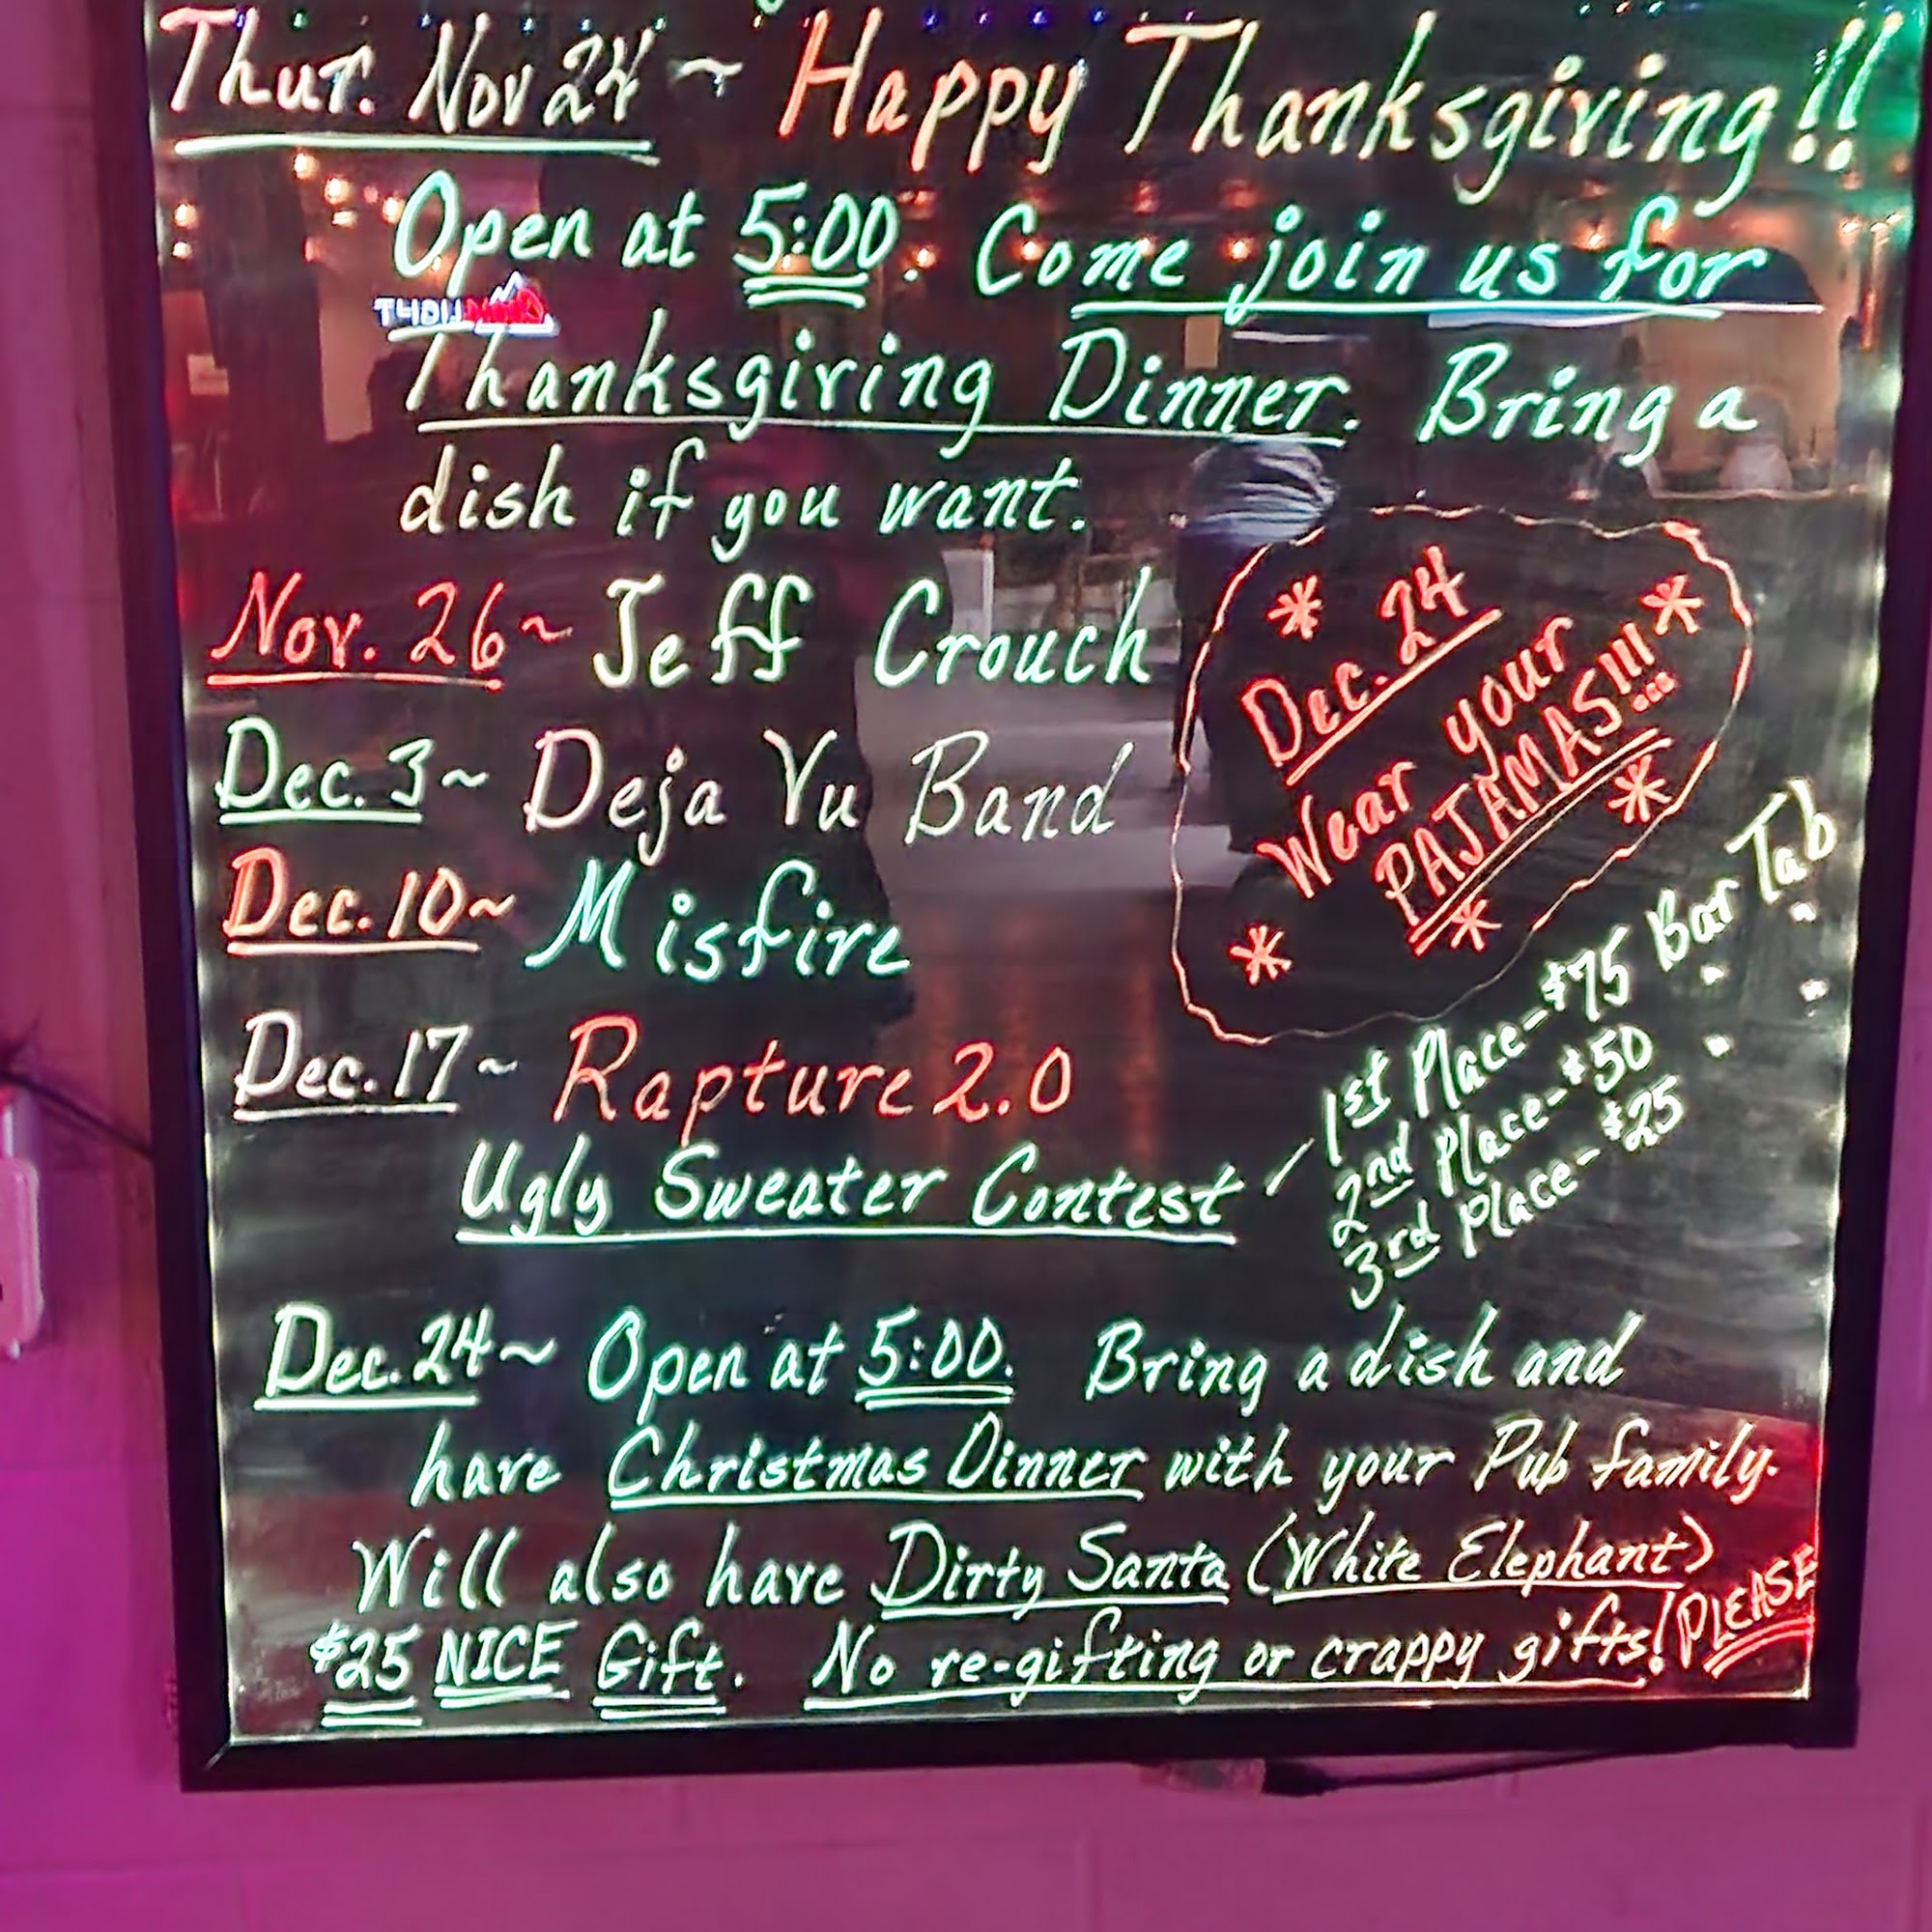 Thur. Nov 24 ~ Happy Thanksgiving!!
Open at 5:00. Come join us for
Thanksgiving Dinner. Bring a
dish if you want.
Nov. 26 ~ Jeff Crouch
Dec. 3 ~ Deja Vu Band
Dec. 10 ~ Misfire
* Dec. 24 *
Wear your
PAJAMAS!!!
* * *
Dec. 17 ~ Rapture 2.0
Ugly Sweater Contest
1st Place - $75 Bar Tab
2nd Place - $50 " "
3rd Place - $25 " "
Dec. 24 ~ Open at 5:00. Bring a dish and
have Christmas Dinner with your Pub family.
Will also have Dirty Santa (White Elephant)
$25 NICE Gift. No re-gifting or crappy gifts! PLEASE